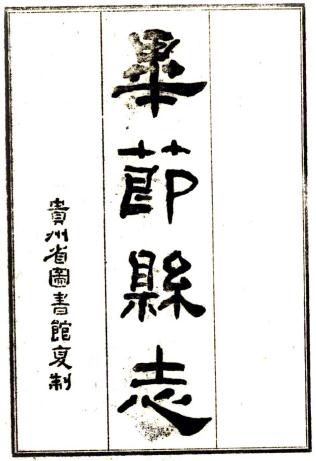 畢節縣志
貴州省圖書館复制